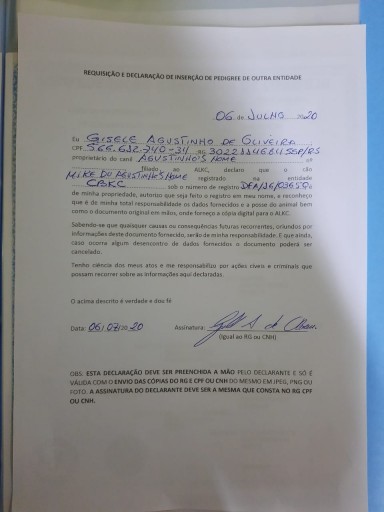 REQUISIÇÃO E DECLARAÇÃO DE INSERÇÃO DE PEDIGREE DE OUTRA ENTIDADE
06 de JULHO 2020
Eu GISELE AGUSTINHO DE OLIVEIRA
CPF 566.632.740-34 RG
proprietário do canil AGUSTINHO'S HOME nº
filiado ao ALKC, declaro que o cão
MIKE DU AGUSTINHO'S HOME registrado na entidade
CBKC sob o número de registro
de minha propriedade, autorizo que seja feito o registro em meu nome, e reconheço
que é de minha total responsabilidade os dados fornecidos e a posse do animal bem
como o documento original em mãos, onde forneço a cópia digital para o ALKC.
Sabendo-se que quaisquer causas ou consequências futuras recorrentes, oriundos por
informações deste documento fornecido, serão de minha responsabilidade. E que ainda,
caso ocorra algum desencontro de dados fornecidos o documento poderá ser
cancelado.
Tenho ciência dos meus atos e me responsabilizo por ações cíveis e criminais que
possam recorrer sobre as informações aqui declaradas.
O acima descrito é verdade e dou fé
Data: 06/07/2020 Assinatura:
(Igual ao RG ou CNH)
OBS: ESTA DECLARAÇÃO DEVE SER PREENCHIDA A MÃO PELO DECLARANTE E SÓ É
VÁLIDA COM O ENVIO DAS CÓPIAS DO RG E CPF OU CNH DO MESMO EM JPEG, PNG OU
FOTO. A ASSINATURA DO DECLARANTE DEVE SER A MESMA QUE CONSTA NO RG CPF
OU CNH.